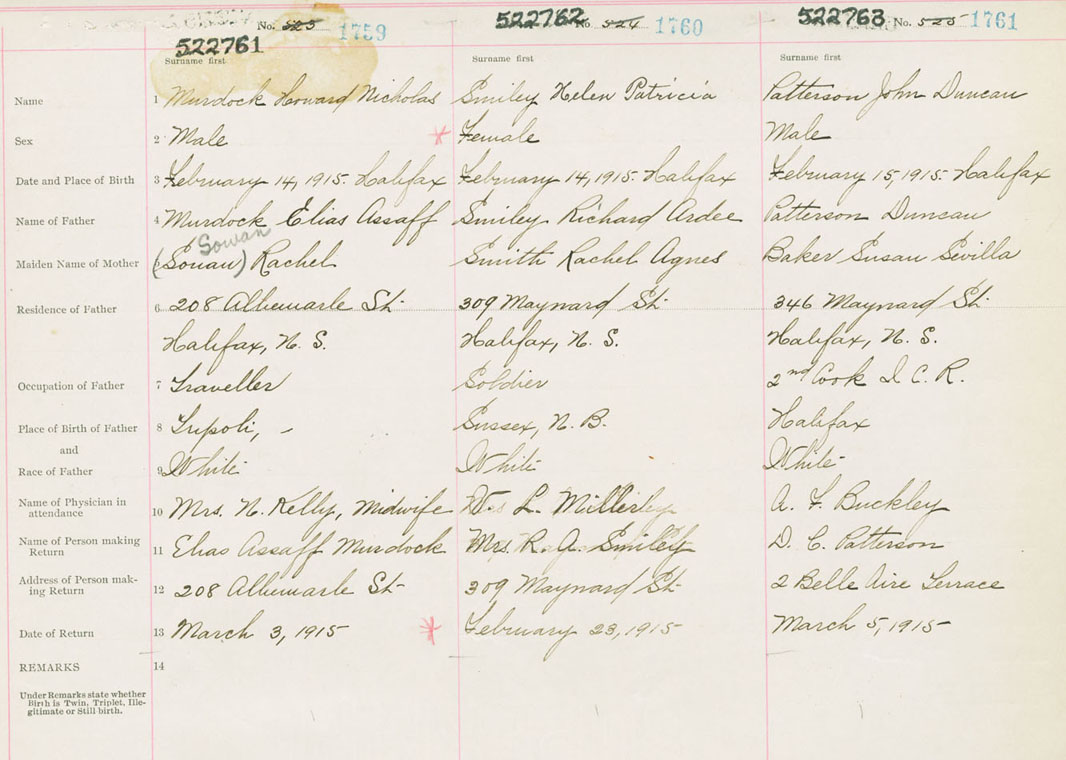 No. 523 1759 522762 No. 524 1760 522763 No. 525 1761
522761
Surname first Surname first Surname first
Name 1 Murdock Howard Nicholas Smiley Helen Patricia Patterson John Duncan
Sex 2 Male Female Male
Date and Place of Birth 3 February 14, 1915. Halifax February 14, 1915. Halifax February 15, 1915. Halifax
Name of Father 4 Murdock Elias Assaff Smiley Richard Ardee Patterson Duncan
Sowan
Maiden Name of Mother 5 (Souan) Rachel Smith Rachel Agnes Baker Susan Sevilla
Residence of Father 6 208 Albemarle St. 309 Maynard St. 346 Maynard St.
Halifax, N. S. Halifax, N. S. Halifax, N. S.
Occupation of Father 7 Traveller Soldier 2nd Cook I. C. R.
Place of Birth of Father 8 Tripoli, - Sussex, N. B. Halifax
and
Race of Father 9 White White White
Name of Physician in
attendance 10 Mrs. N. Kelly, Midwife L. A. F. Buckley
Name of Person making
Return 11 Elias Assaff Murdock Mrs. R. A. Smiley D. C. Patterson
Address of Person mak-
ing Return 12 208 Albemarle St. 309 Maynard St. 2 Belle Aire Terrace
Date of Return 13 March 3, 1915 February 23, 1915 March 5, 1915
REMARKS 14
Under Remarks state whether
Birth is Twin, Triplet, Ille-
gitimate or Still birth.